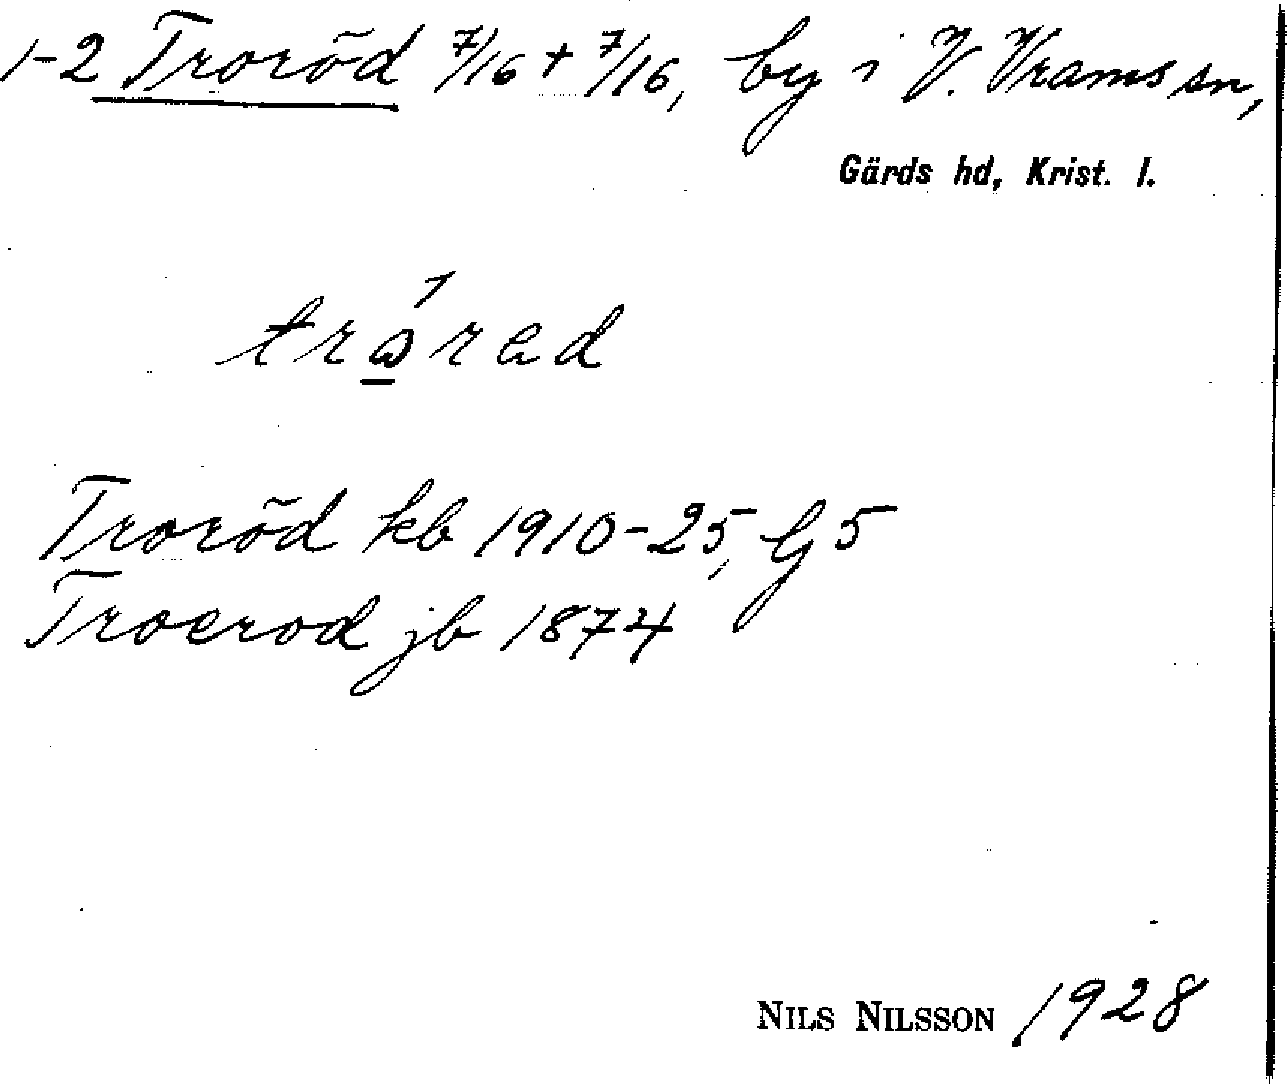 1-2 Troröd 7/16 + 7/16, by i V. Vrams sn,
Gärds hd, Krist. l.
Troröd kb 1910-25, G5
Troerod jb 1874
NILS NILSSON 1928